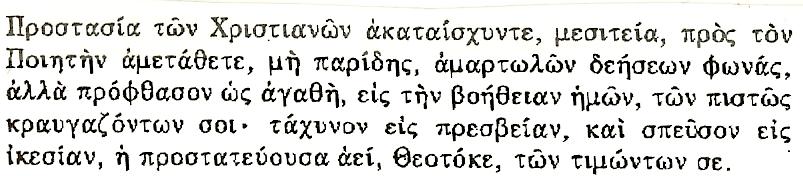 Προστασία τῶν Χριστιανῶν ἀκαταίσχυντε, μεσιτεία, πρὸς τὸν
Ποιητὴν ἀμετάθετε, μὴ παρίδης, ἁμαρτωλῶν δεήσεων φωνάς,
ἀλλὰ πρόφθασον ὡς ἀγαθὴ, εἰς τὴν βοήθειαν ἡμῶν, τῶν πιστῶς
κραυγαζόντων σοι· τάχυνον εἰς πρεσβείαν, καὶ σπεῦσον εἰς
ἱκεσίαν, ἡ προστατεύουσα ἀεί, Θεοτόκε, τῶν τιμώντων σε.